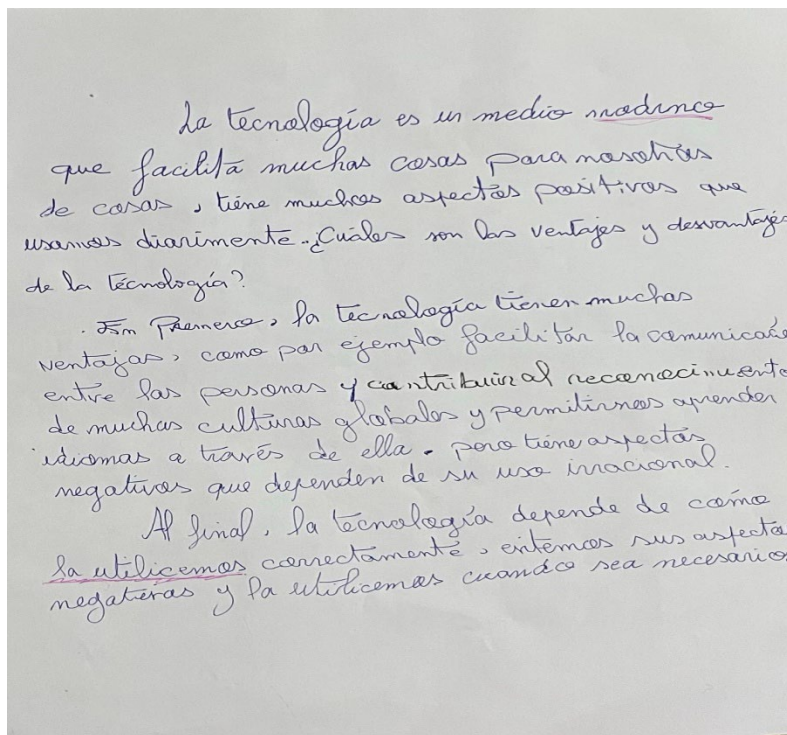 La tecnología es un medio modrnco
que facilita muchas cosas para nosotras
de cosas, tiene muchos aspectos positivos que
usamos diarimente. ¿Cuáles son las ventajes y desvantajes
de la tecnología?
. Em Premero, la tecnología tienen muchas
ventajas, como por ejemplo facilitar la comunicac
entre las personas y contribuir al reconocimiento
de muchas culturas globales y permitirnos aprender
idiomas a través de ella. pero tiene aspectos
negativos que dependen de su uso irracional.
Al final, la tecnología depende de como
la utilicemos correctamente, entemos sus aspecto
negateras y la utilicemos cuando sea necesario